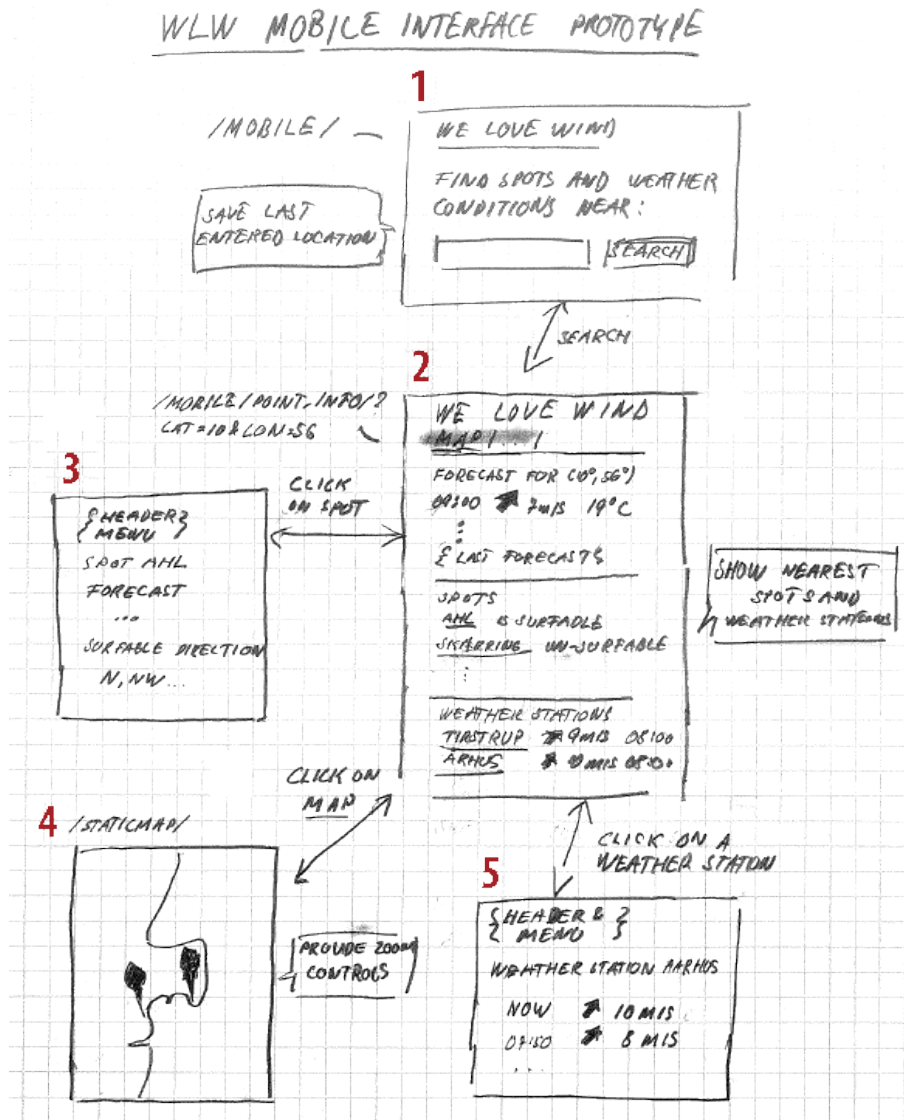 WLW MOBILE INTERFACE PROTOTYPE
1
/MOBILE/
WE LOVE WIND
FIND SPOTS AND WEATHER
CONDITIONS NEAR:
SEARCH
SAVE LAST
ENTERED LOCATION
SEARCH
2
/MOBILE/POINT_INFO/?
LAT=10&LON=56
WE LOVE WIND
MAP | . . . |
FORECAST FOR (10°, 56°)
09:00 7m/s 19°C
{ LAST FORECAST }
SPOTS
AHL IS SURFABLE
SKÆRRING UN-SURFABLE
WEATHER STATIONS
TIRSTRUP 9m/s 08:00
ARHUS m/s 08:00
SHOW NEAREST
SPOTS AND
WEATHER STATIONS
3
CLICK
ON SPOT
{HEADER}
MENU
SPOT AHL
FORECAST
...
SURFABLE DIRECTION
N, NW...
CLICK ON
MAP
4
/STATICMAP/
PROVIDE ZOOM
CONTROLS
CLICK ON A
WEATHER STATION
5
{HEADER & }
{ MENU }
WEATHER STATION AARHUS
NOW 10 M/S
07:50 8 M/S
...